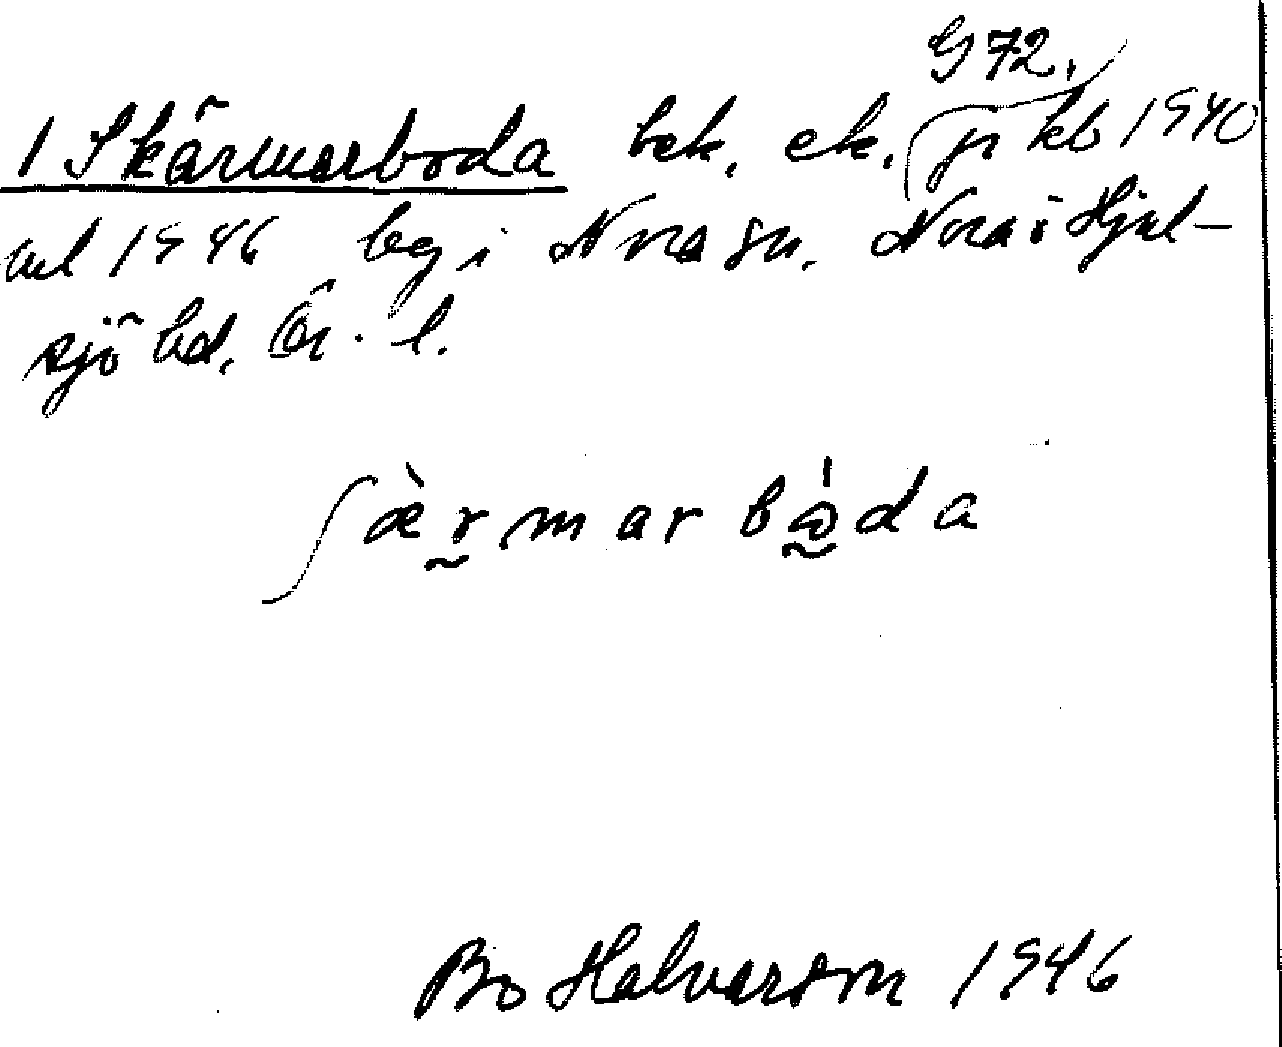 G 72.
1 Skärmarboda bek. ek. jr kb 1940
uel 1946 beg i Nora sn. Nora o Hjul-
sjö bd. Ör. l.
ʃæ̀r̰marbå̀da
Bo Halvarson 1946